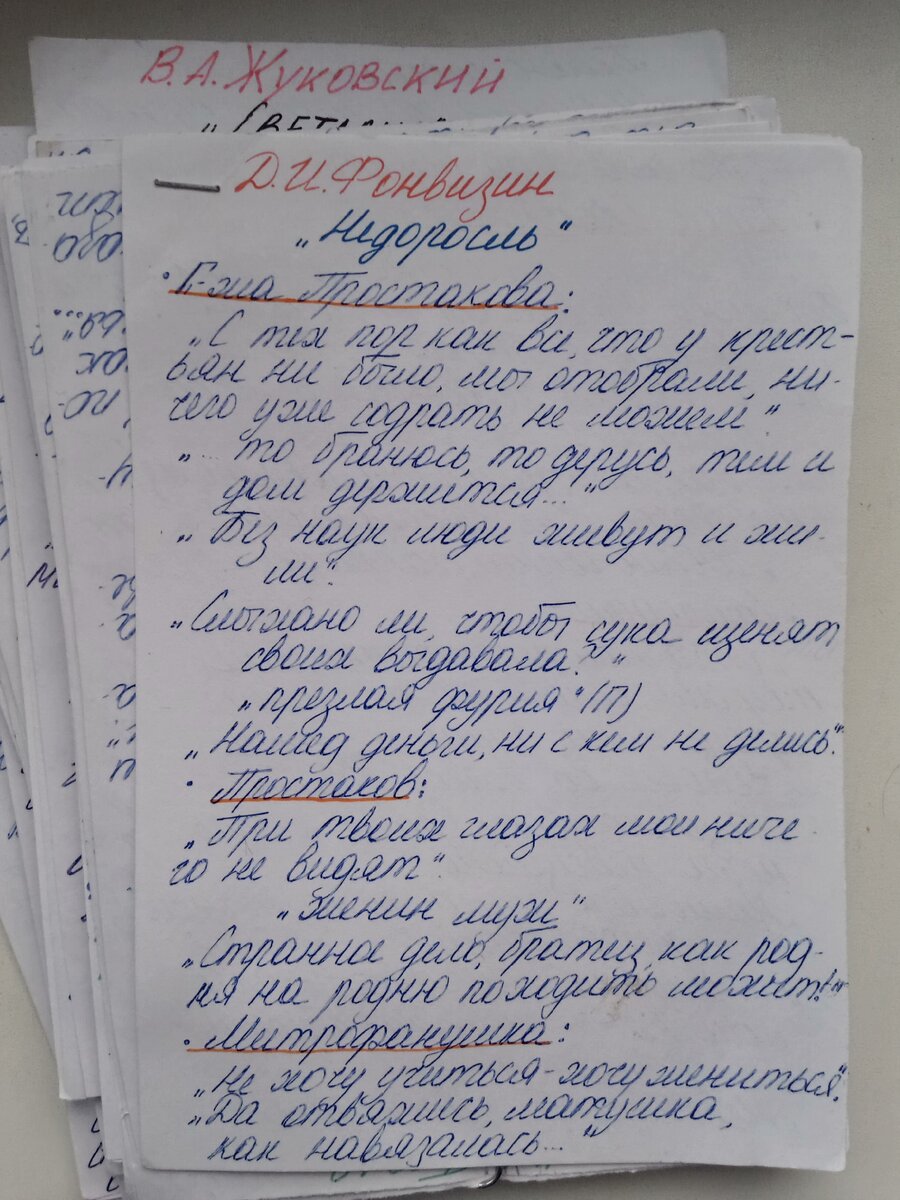 В.А. Жуковский
Д.И. Фонвизин
„Недоросль"
· Г-жа Простакова:
„С тех пор как все, что у крест-
ьян ни было, мы отобрали, ни-
чего уже содрать не можем"
„... то бранюсь, то дерусь, тем и
дом держится..."
„Без наук люди живут и жи-
ли".
„Слыхано ли, чтобы сука щенят
своих выдавала?"
„презлая фурия" (П)
„Нашед деньги, ни с кем не делись".
· Простаков:
„При твоих глазах мои ниче-
го не видят".
„Женин муж"
„Странное дело, братец, как род-
ня на родню походить может!"
· Митрофанушка:
„Не хочу учиться - хочу жениться".
„Да отвяжись, матушка,
как навязалась..."